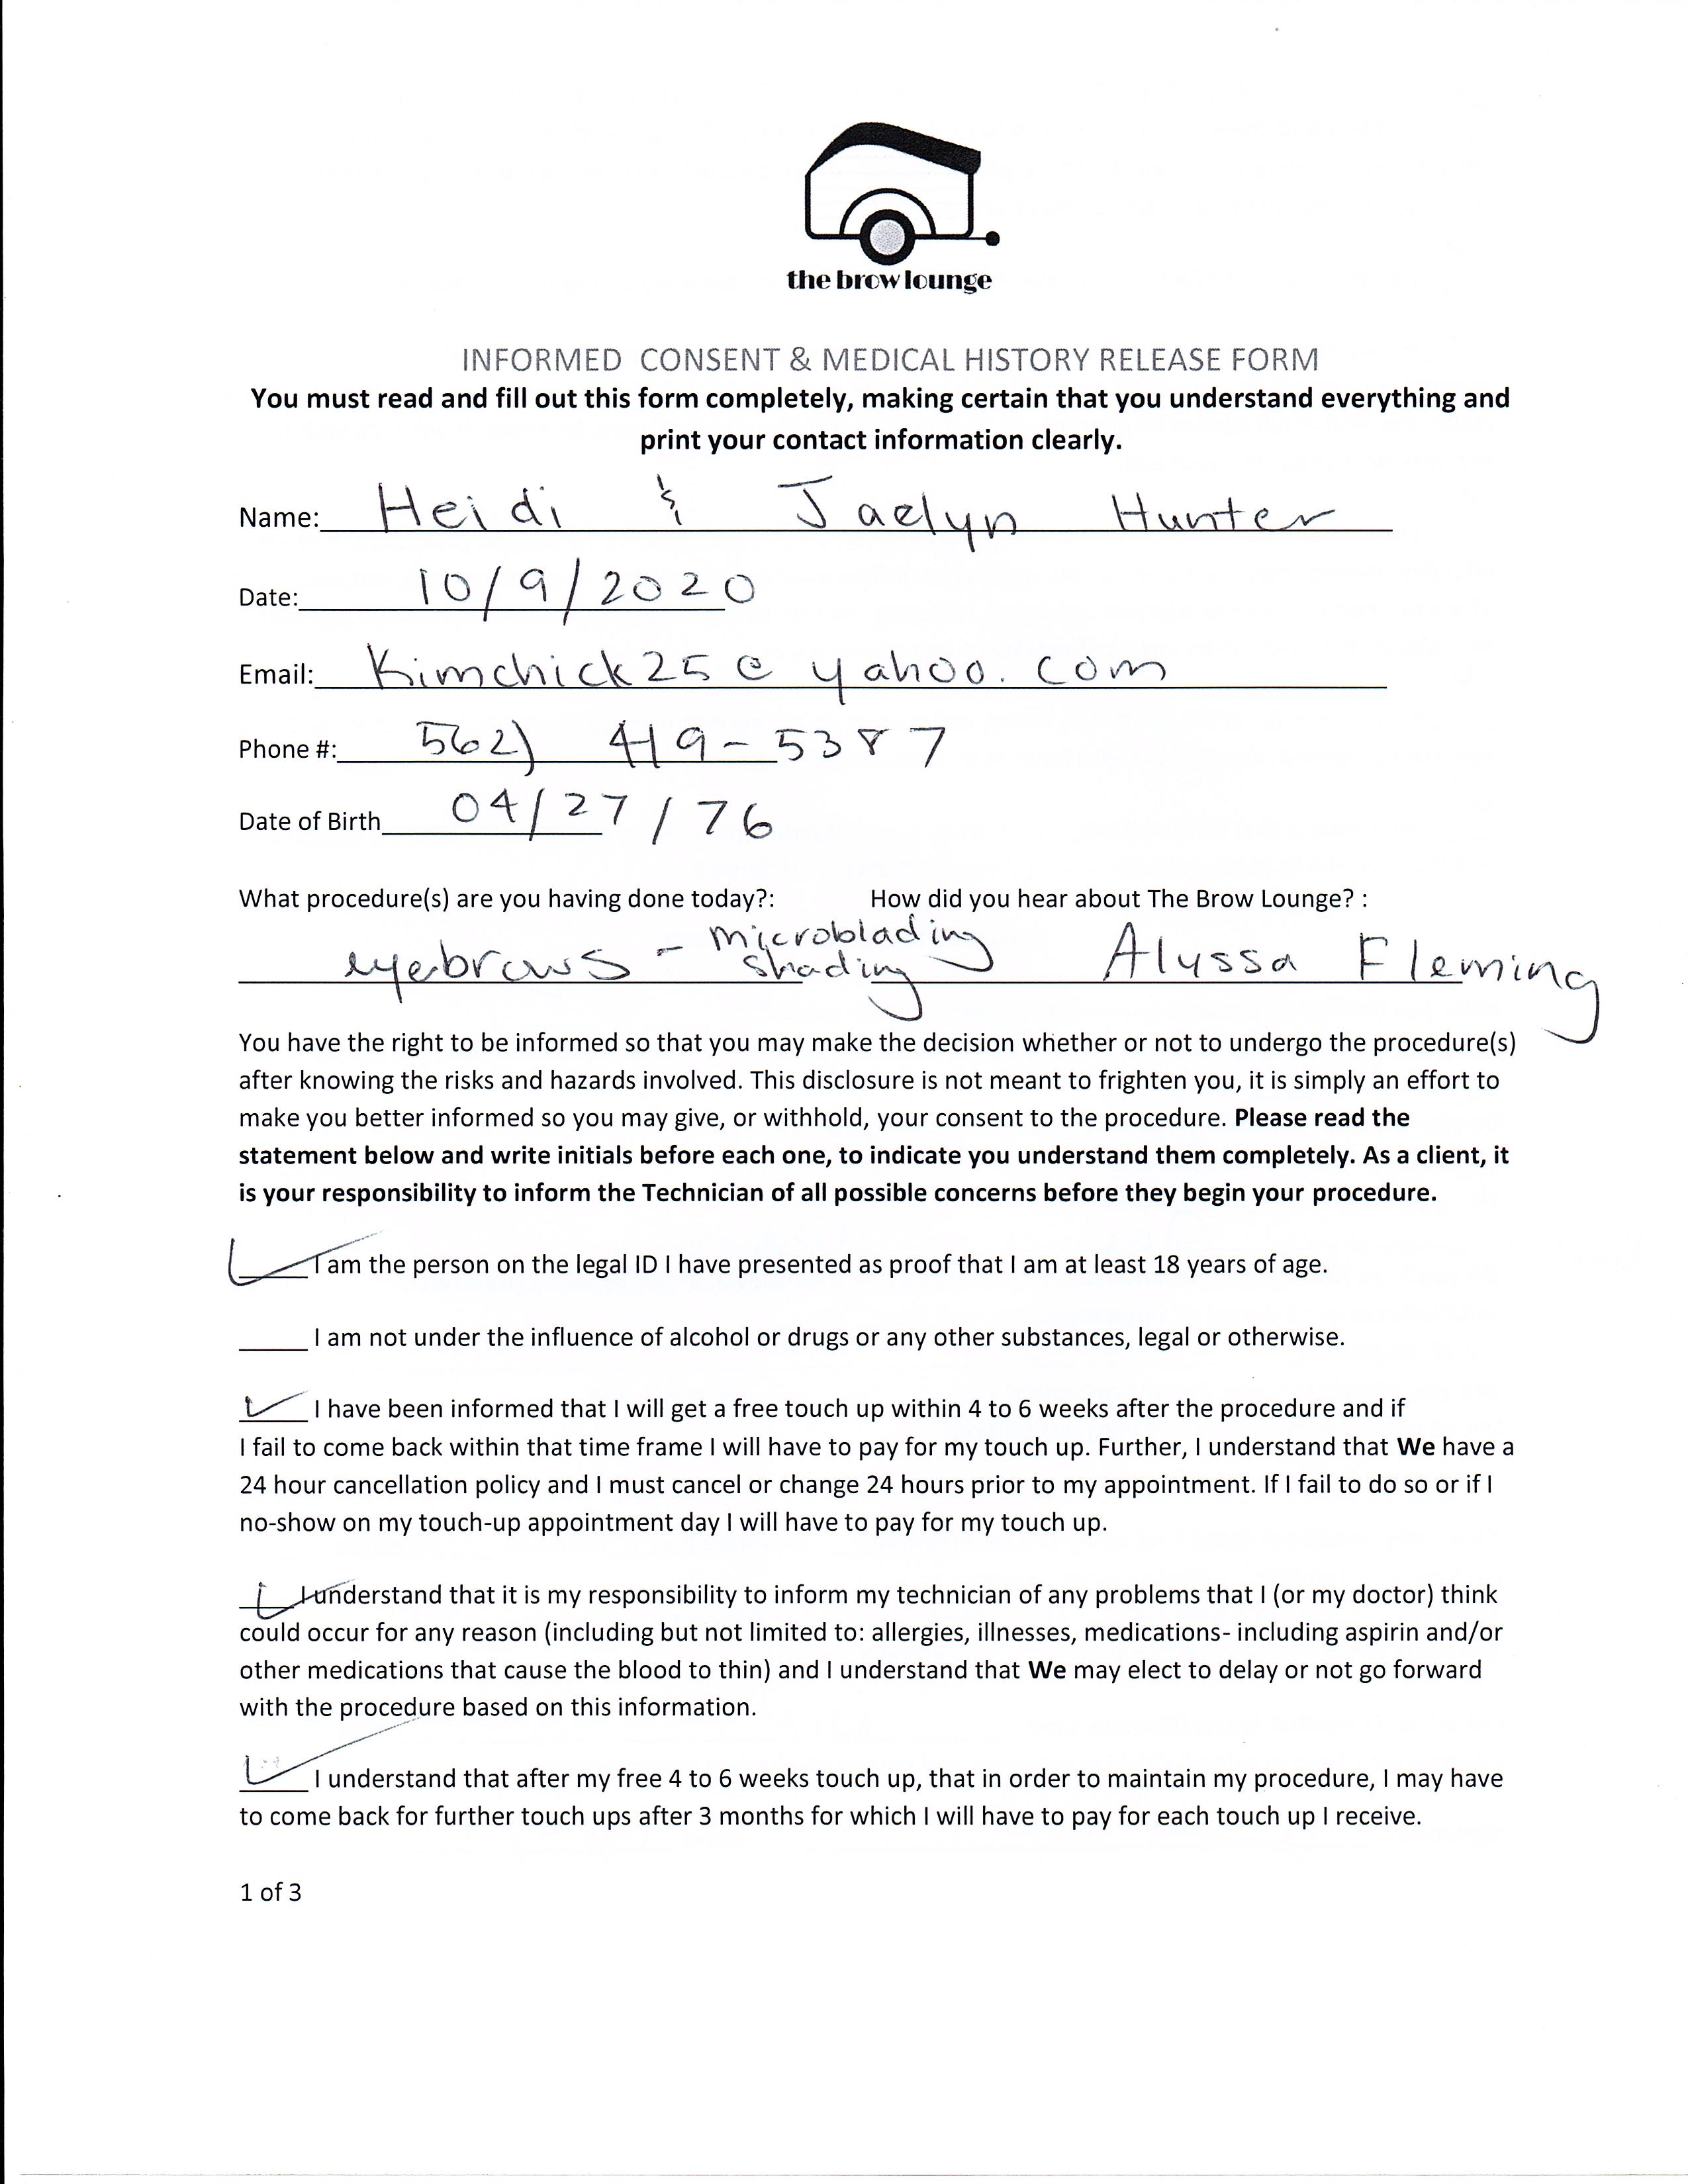 the brow lounge
INFORMED CONSENT & MEDICAL HISTORY RELEASE FORM
You must read and fill out this form completely, making certain that you understand everything and
print your contact information clearly.
Name: Heidi & Jaelyn Hunter
Date: 10/9/2020
Email: Kimchick25@yahoo.com
Phone #: 562) 419-5387
Date of Birth 04/27/76
What procedure(s) are you having done today?: How did you hear about The Brow Lounge? :
eyebrows - microblading shading Alyssa Fleming
You have the right to be informed so that you may make the decision whether or not to undergo the procedure(s)
after knowing the risks and hazards involved. This disclosure is not meant to frighten you, it is simply an effort to
make you better informed so you may give, or withhold, your consent to the procedure. Please read the
statement below and write initials before each one, to indicate you understand them completely. As a client, it
is your responsibility to inform the Technician of all possible concerns before they begin your procedure.
I am the person on the legal ID I have presented as proof that I am at least 18 years of age.
I am not under the influence of alcohol or drugs or any other substances, legal or otherwise.
I have been informed that I will get a free touch up within 4 to 6 weeks after the procedure and if
I fail to come back within that time frame I will have to pay for my touch up. Further, I understand that We have a
24 hour cancellation policy and I must cancel or change 24 hours prior to my appointment. If I fail to do so or if I
no-show on my touch-up appointment day I will have to pay for my touch up.
I understand that it is my responsibility to inform my technician of any problems that I (or my doctor) think
could occur for any reason (including but not limited to: allergies, illnesses, medications- including aspirin and/or
other medications that cause the blood to thin) and I understand that We may elect to delay or not go forward
with the procedure based on this information.
I understand that after my free 4 to 6 weeks touch up, that in order to maintain my procedure, I may have
to come back for further touch ups after 3 months for which I will have to pay for each touch up I receive.
1 of 3